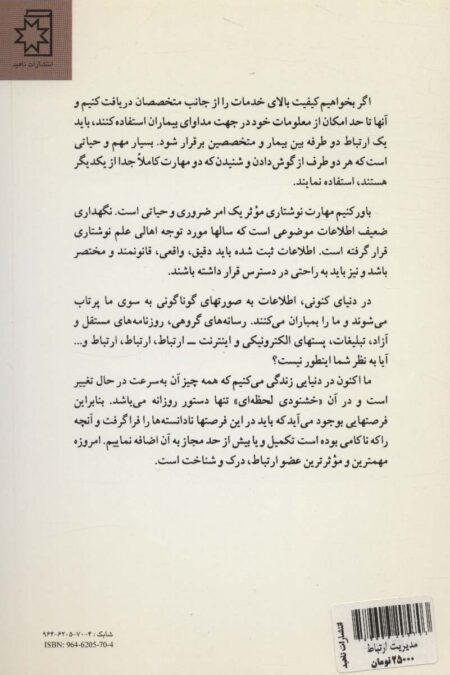 انتشارات ناهید
اگر بخواهیم کیفیت بالای خدمات را از جانب متخصصان دریافت کنیم و
آنها تا حد امکان از معلومات خود در جهت مداوای بیماران استفاده کنند، باید
یک ارتباط دو طرفه بین بیمار و متخصصین برقرار شود. بسیار مهم و حیاتی
است که هر دو طرف از گوش‌دادن و شنیدن که دو مهارت کاملاً جدا از یکدیگر
هستند، استفاده نمایند.
باور کنیم مهارت نوشتاری مؤثر یک امر ضروری و حیاتی است. نگهداری
ضعیف اطلاعات موضوعی است که سالها مورد توجه اهالی علم نوشتاری
قرار گرفته است. اطلاعات ثبت شده باید دقیق، واقعی، قانونمند و مختصر
باشد و نیز باید به راحتی در دسترس قرار داشته باشند.
در دنیای کنونی، اطلاعات به صورتهای گوناگونی به سوی ما پرتاب
می‌شوند و ما را بمباران می‌کنند. رسانه‌های گروهی، روزنامه‌های مستقل و
آزاد، تبلیغات، پستهای الکترونیکی و اینترنت ــ ارتباط، ارتباط، ارتباط و...
آیا به نظر شما اینطور نیست؟
ما اکنون در دنیایی زندگی می‌کنیم که همه چیز آن به‌سرعت در حال تغییر
است و در آن «خشنودی لحظه‌ای» تنها دستور روزانه می‌باشد. بنابراین
فرصتهایی بوجود می‌آید که باید در این فرصتها نادانسته‌ها را فرا گرفت و آنچه
را که ناکامی بوده است تکمیل و یا بیش از حد مجاز به آن اضافه نماییم. امروزه
مهمترین و مؤثرترین عضو ارتباط، درک و شناخت است.
شابک: ۴-۷۰-۶۲۰۵-۹۶۴
ISBN: 964-6205-70-4
انتشارات ناهید
مدیریت ارتباط
۲۵۰۰۰ تومان